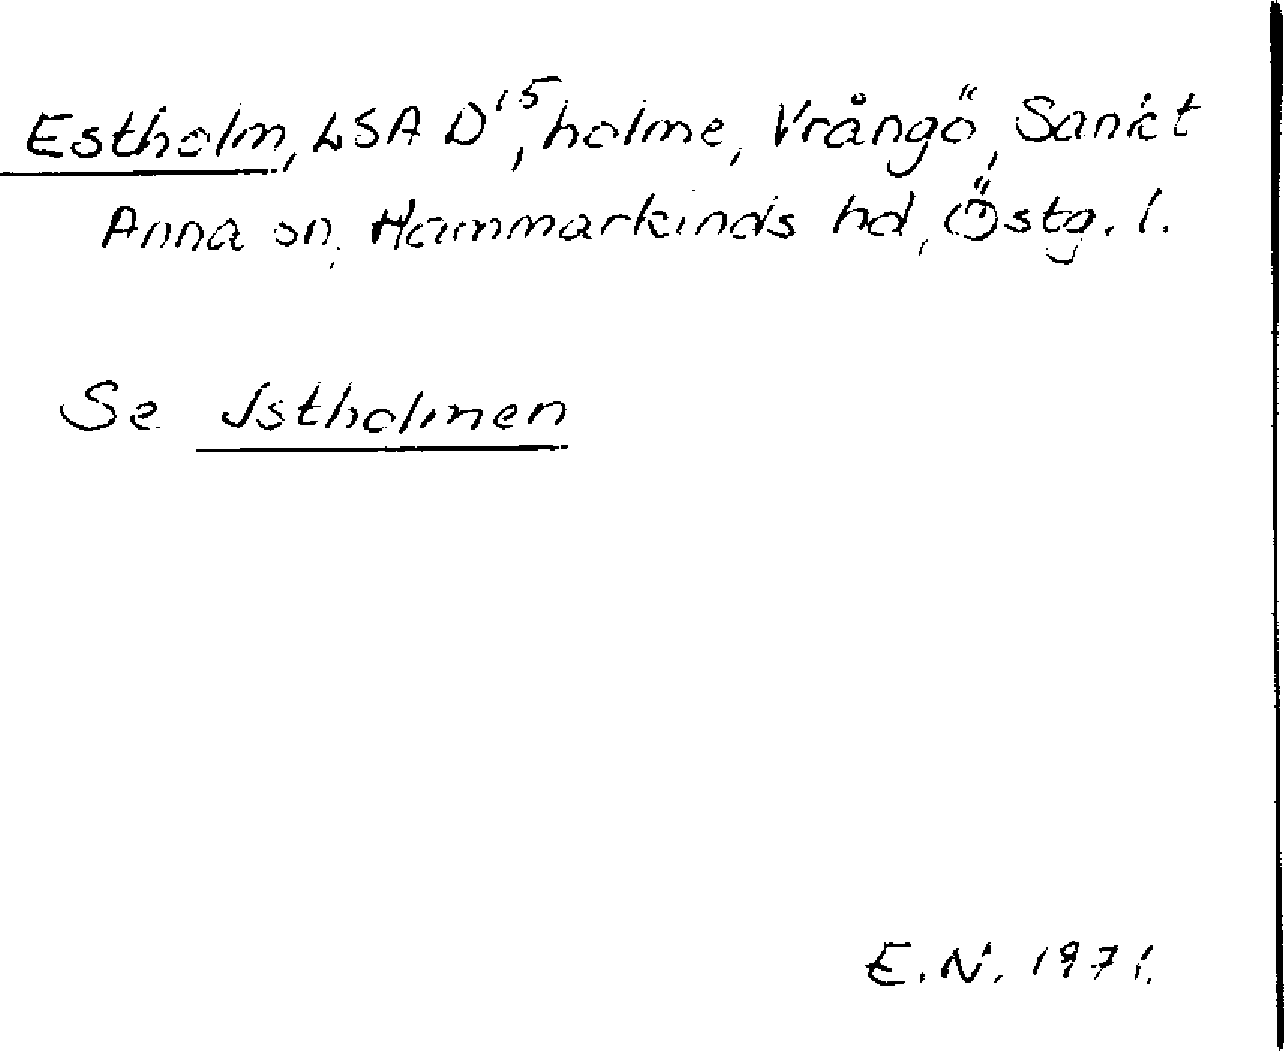 Estholm, LSA D¹⁵, holme, Vrångö, Sankt
Anna sn, Hammarkinds hd, Östg. l.
Se Istholmen
E.N. 1971.